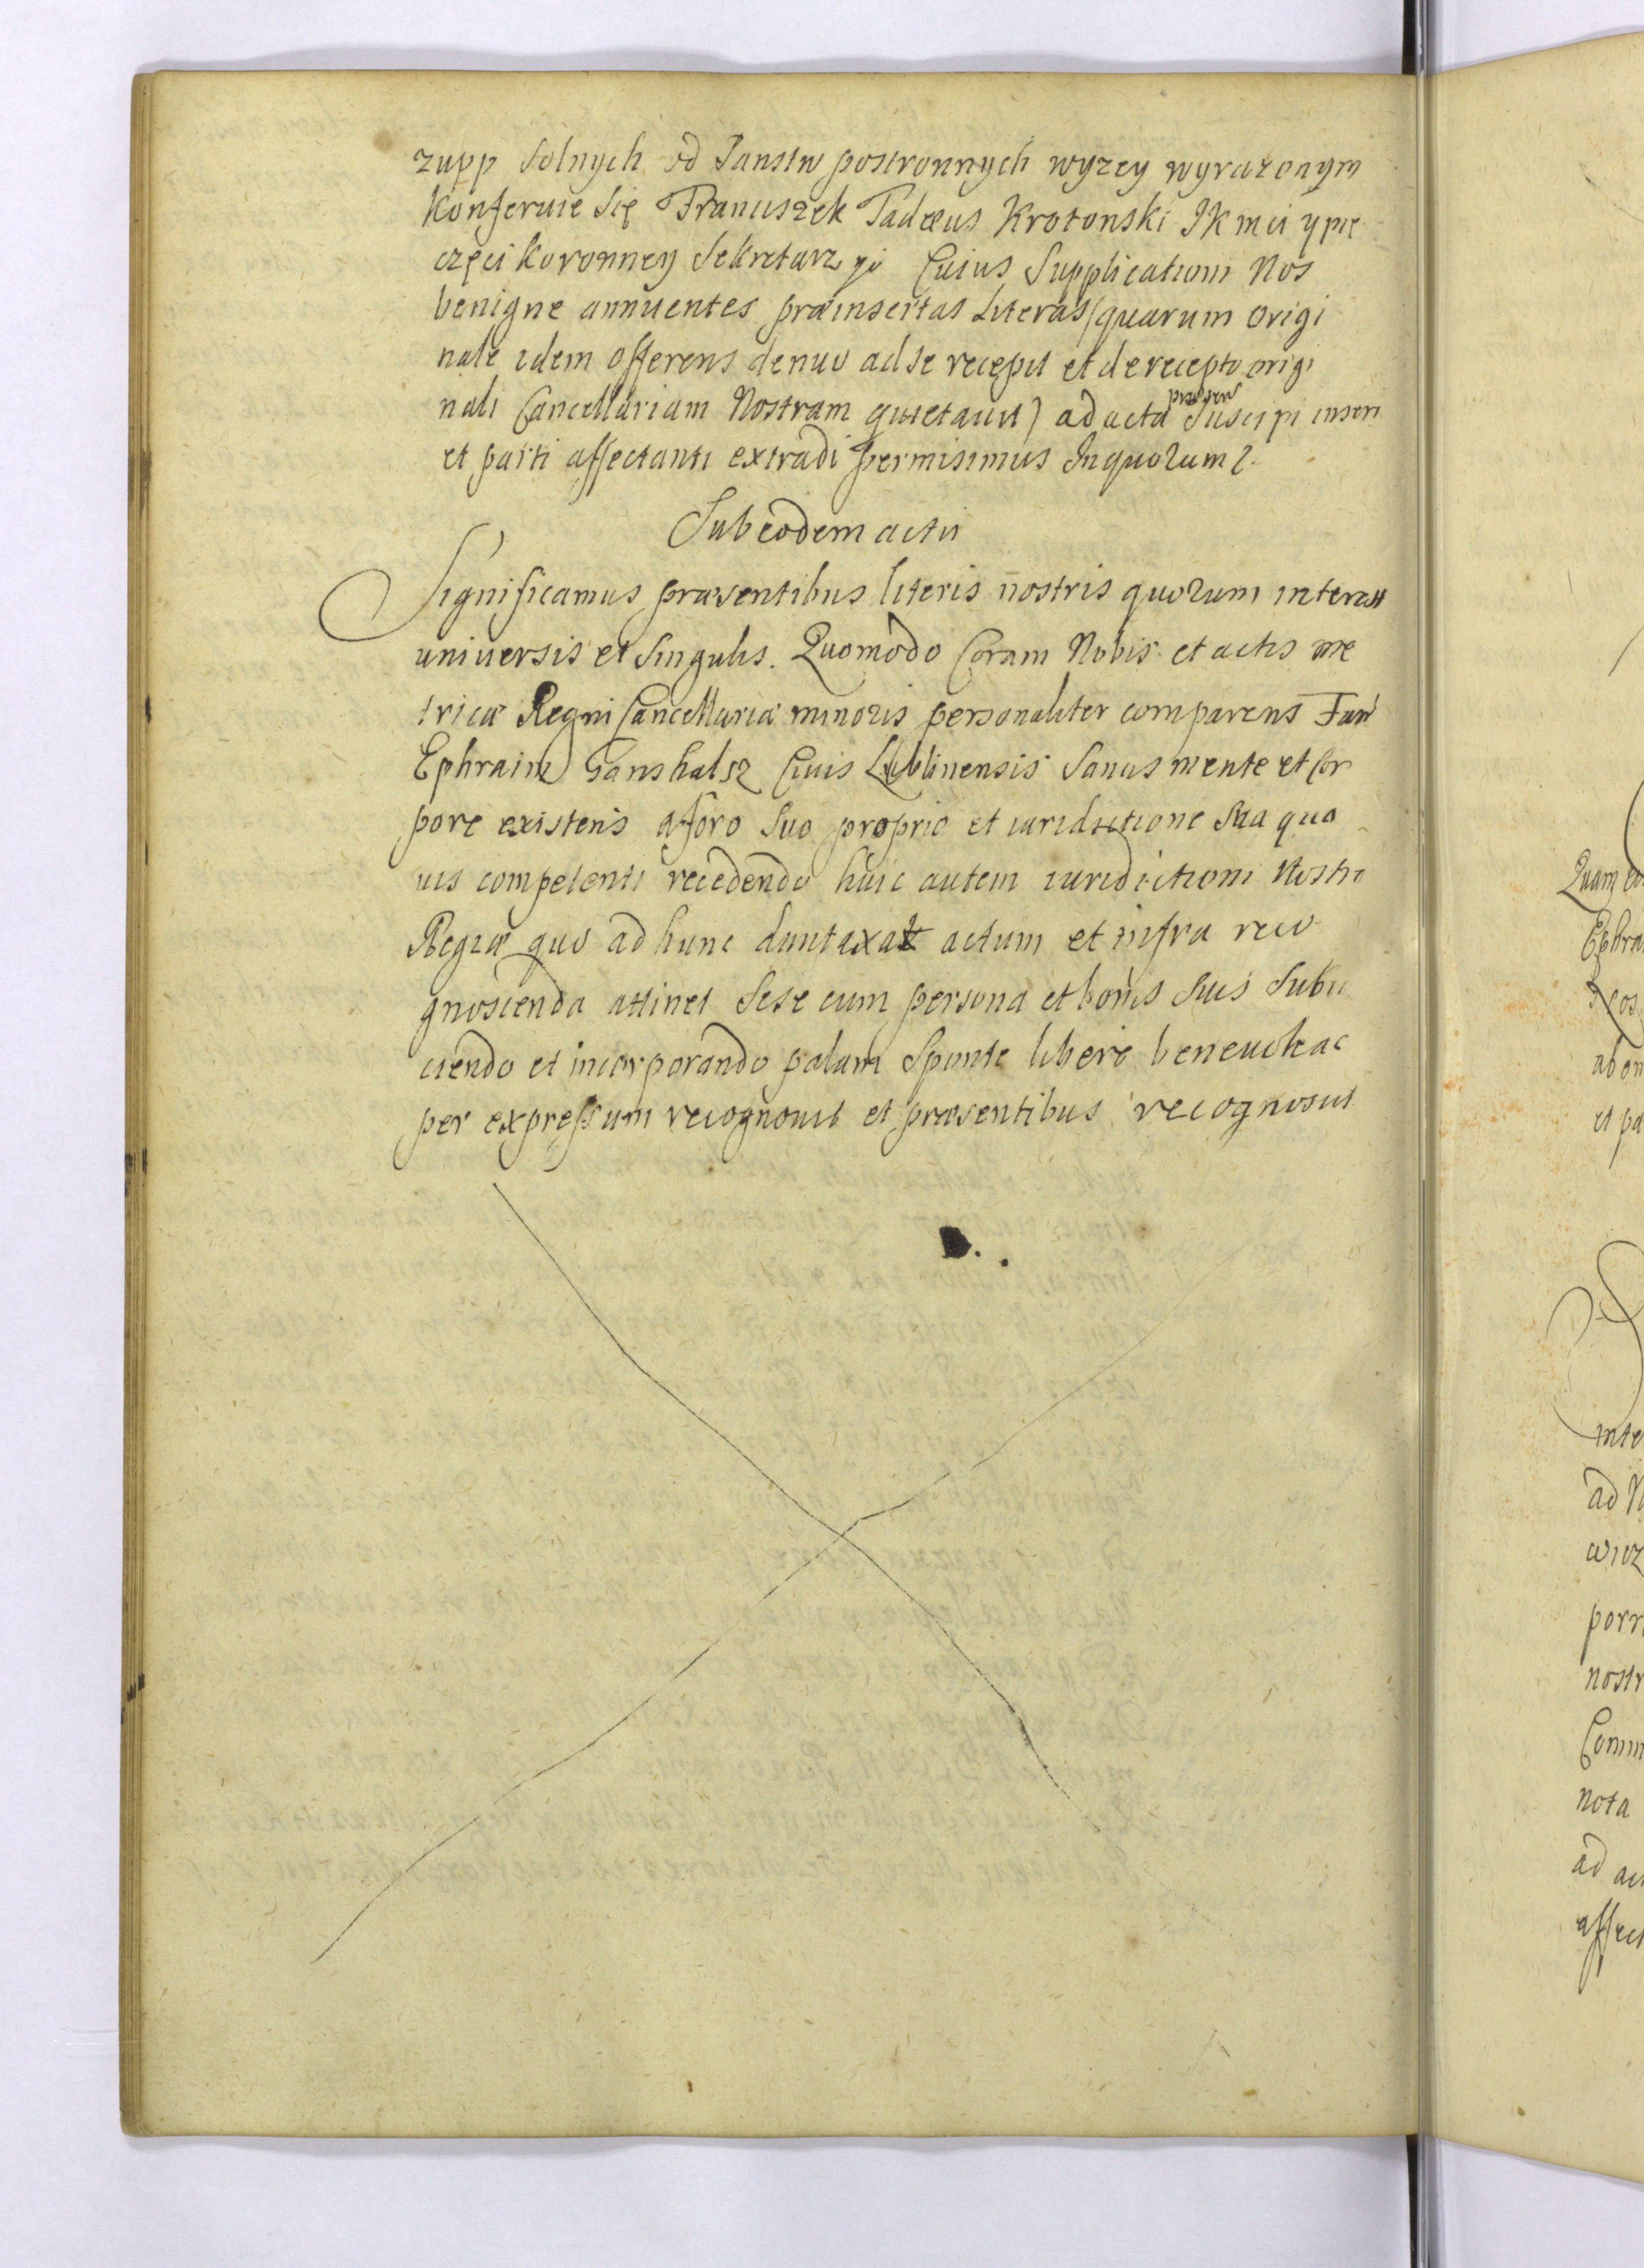 zupp Solnych od Panstw postronnych wyzey wyrazonym
Konferuie Się Franciszek Tadeus Krotonski JKmci y pie
częci koronney Sekretarz Cuius Supplicationi Nos
benigne annuentes præinsertas Literas (quarum origi
nale idem offerens denuo ad se recepit et de recepto origi
nali Cancellariam Nostram quietauit) ad acta Suscipi inseri
et parti affectanti extradi permisimus In quorum
Sub eodem actu
Significamus præsentibus literis nostris quorum interest
uniuersis et Singulis. Quomodo Coram Nobis et actis me
tricæ Regni Cancellariæ minoris personaliter comparens Fan
Ephraim Ganshalsz Ciuis Lublinensis Sanus mente et Cor
pore existens a foro Suo proprio et iurisdictione Sua qua
uis competenti recedendo huic autem iurisdictioni Nostræ
Regiæ quo ad hunc duntaxat actum et infra reco
gnoscenda attinet Sese cum persona et bonis Suis Subii
ciendo et incorporando palam Sponte libere beneuole ac
per expressum recognouit et præsentibus recognoscit
Quam
Ephra
ad on
et pa
inte
ad N
wicz
porr
nostr
Comm
nota
ad ac
affec